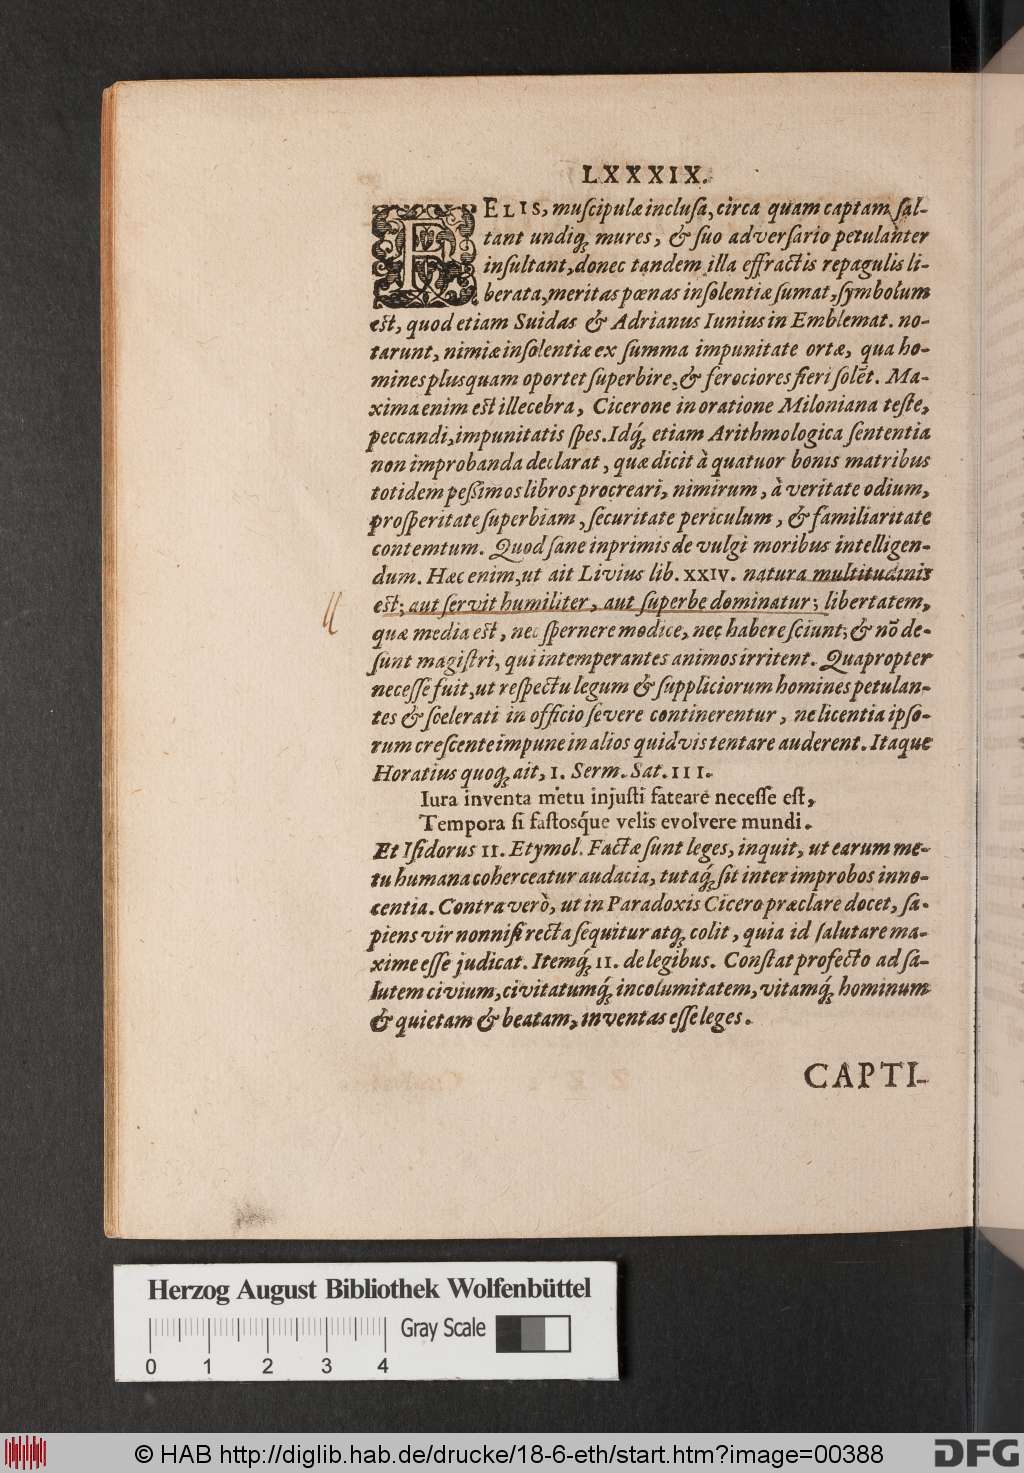 LXXXIX.
FELIS, muscipulæ inclusa, circa quam captam sal-
tant undiq; mures, & suo adversario petulanter
insultant, donec tandem illa effractis repagulis li-
berata, meritas pœnas insolentiæ sumat, symbolum
est, quod etiam Suidas & Adrianus Iunius in Emblemat. no-
tarunt, nimiæ insolentiæ ex summa impunitate ortæ, qua ho-
mines plusquam oportet superbire, & ferociores fieri solēt. Ma-
xima enim est illecebra, Cicerone in oratione Miloniana teste,
peccandi, impunitatis spes. Idq́; etiam Arithmologica sententia
non improbanda declarat, quæ dicit à quatuor bonis matribus
totidem peſſimos libros procreari, nimirum, à veritate odium,
prosperitate superbiam, securitate periculum, & familiaritate
contemtum. Quod sane inprimis de vulgi moribus intelligen-
dum. Hæc enim, ut ait Livius lib. XXIV. natura multitudinis
est; aut servit humiliter, aut superbe dominatur; libertatem,
quæ media est, nec spernere modice, nec habere sciunt; & nō de-
sunt magistri, qui intemperantes animos irritent. Quapropter
necesse fuit, ut respectu legum & suppliciorum homines petulan-
tes & scelerati in officio severe continerentur, ne licentia ipso-
rum crescente impune in alios quidvis tentare auderent. Itaque
Horatius quoq; ait, 1. Serm. Sat. III.
Iura inventa metu injusti fateare necesse est,
Tempora si fastosq́ue velis evolvere mundi.
Et Isidorus II. Etymol. Factæ sunt leges, inquit, ut earum me-
tu humana coherceatur audacia, tutaq́; sit inter improbos inno-
centia. Contra verò, ut in Paradoxis Cicero præclare docet, sa-
piens vir nonnisi recta sequitur atq; colit, quia id salutare ma-
xime esse judicat. Itemq́; II. de legibus. Constat profecto ad sa-
lutem civium, civitatumq́; incolumitatem, vitamq́; hominum
& quietam & beatam, inventas esse leges.
CAPTI-
Herzog August Bibliothek Wolfenbüttel
Gray Scale
0 1 2 3 4
© HAB http://diglib.hab.de/drucke/18-6-eth/start.htm?image=00388
DFG